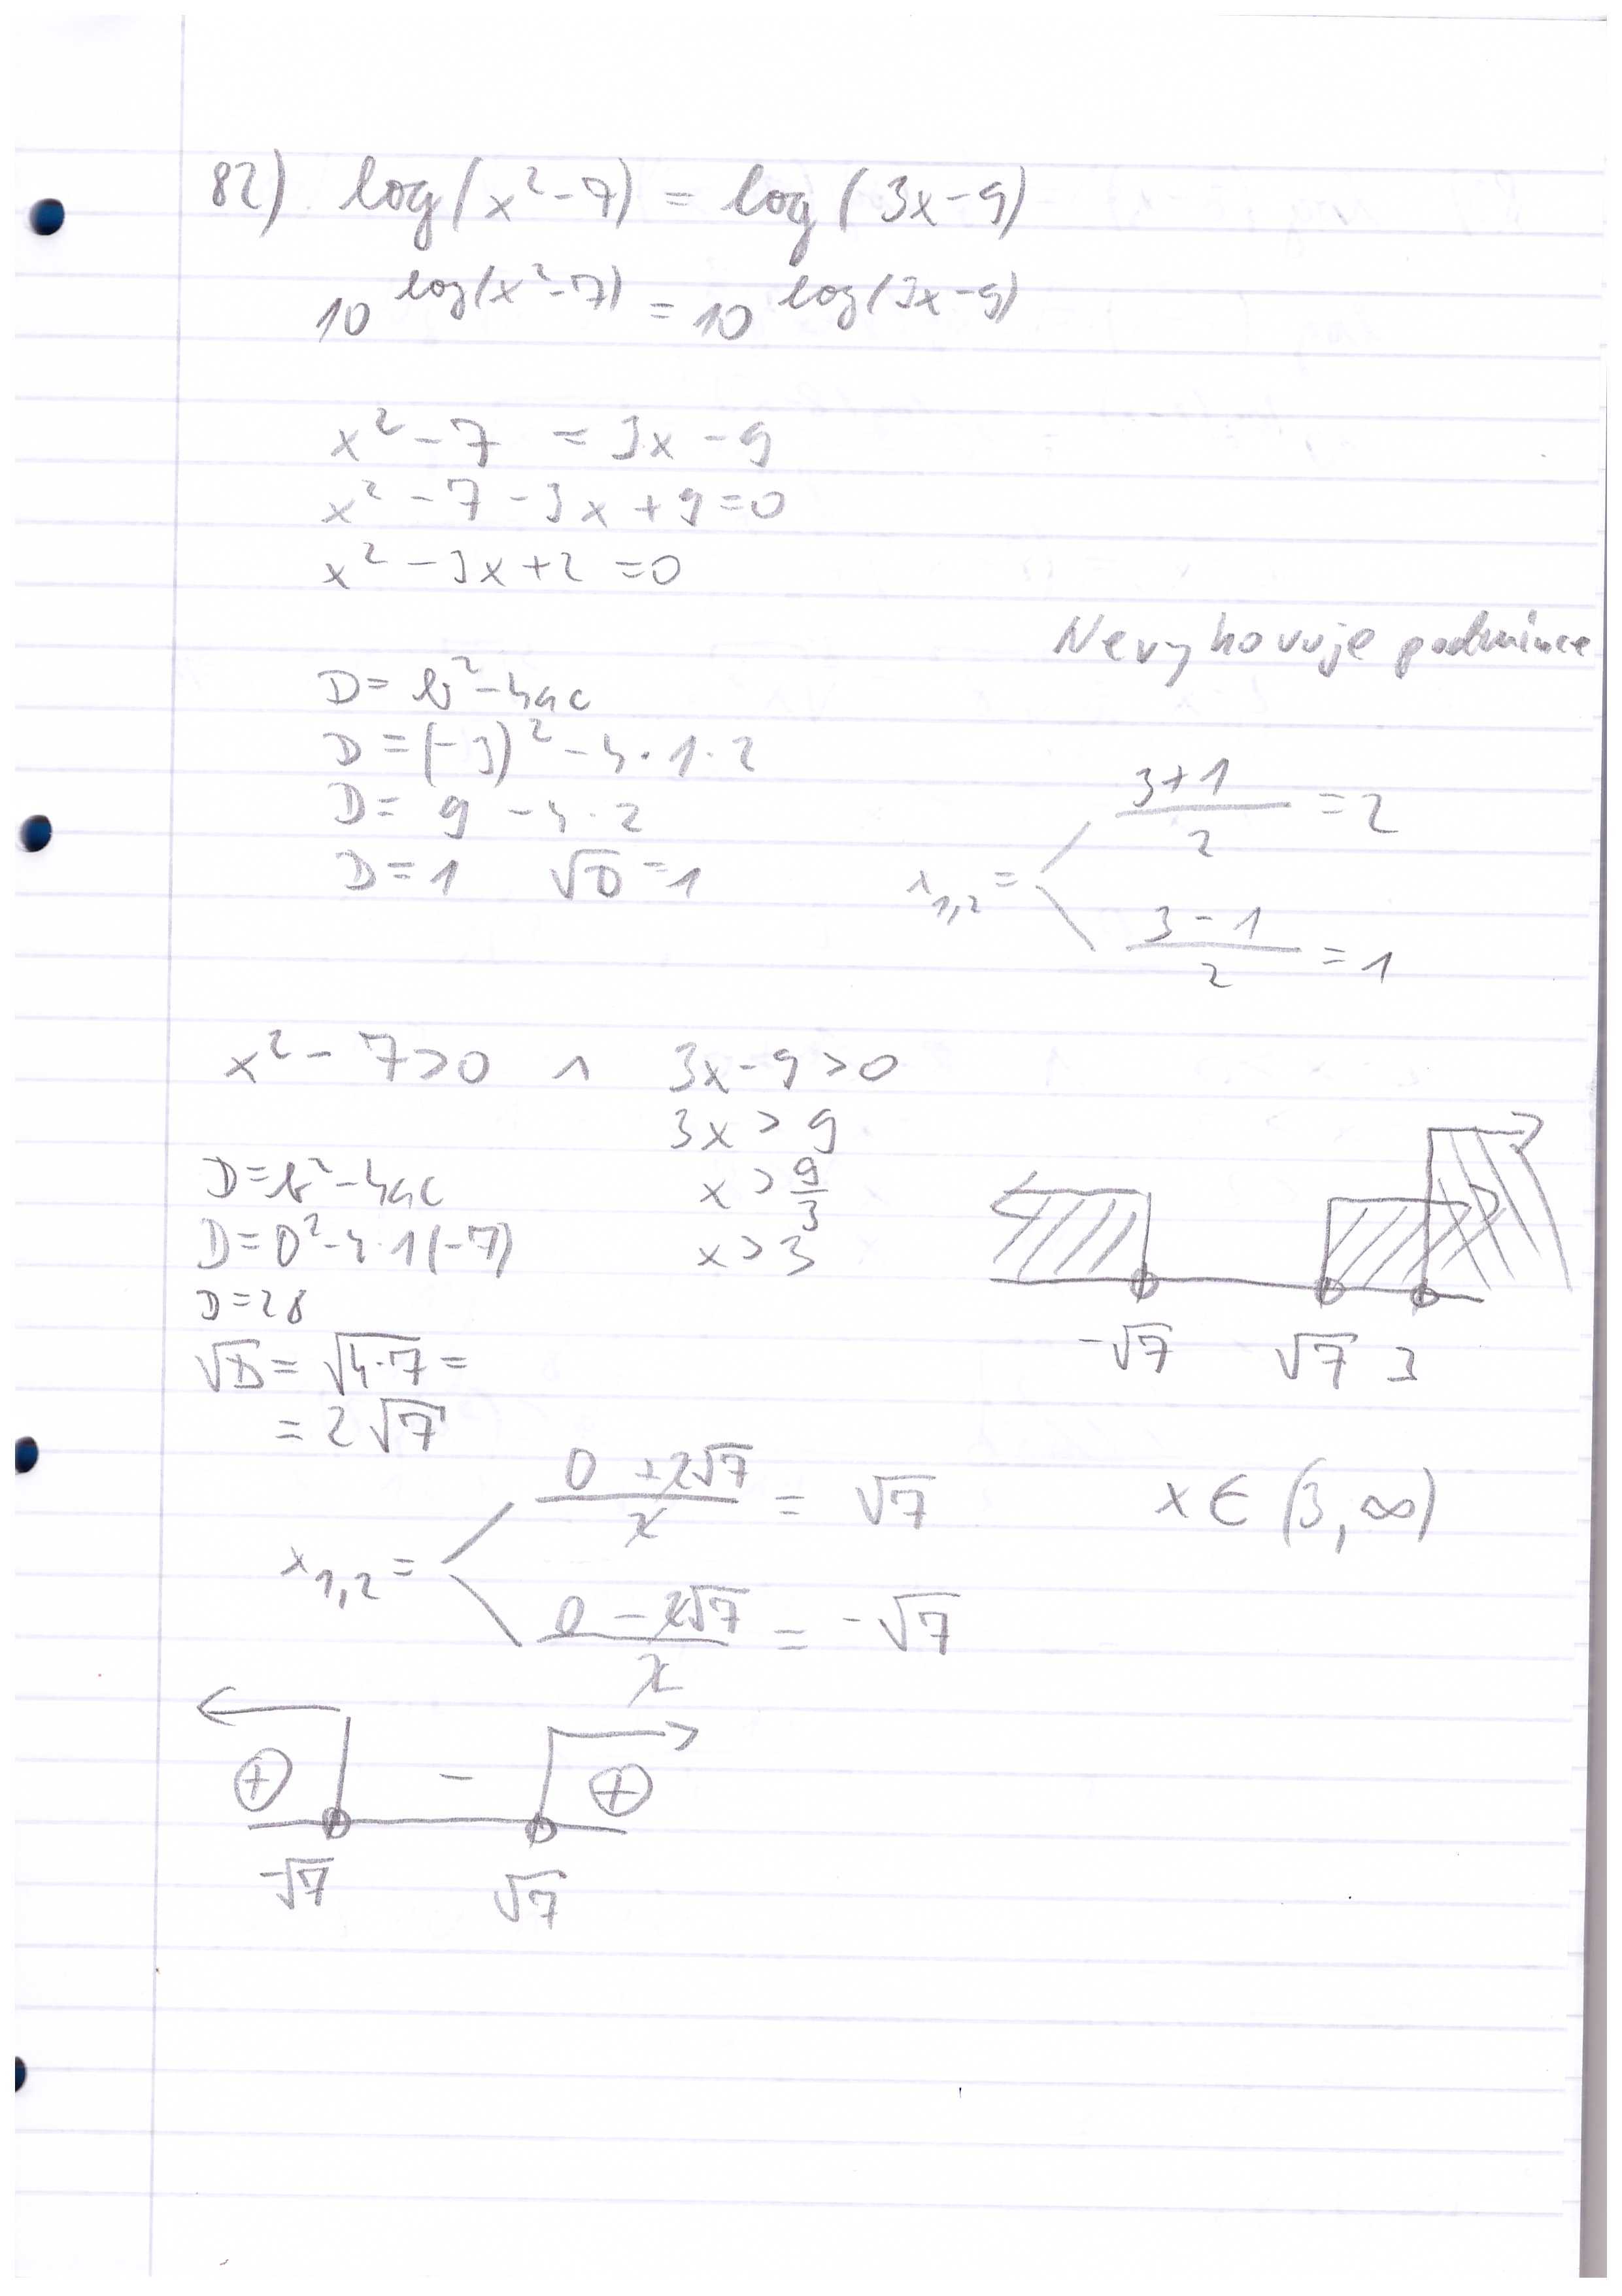 82) log(x²-7) = log(3x-9)
10^log(x²-7) = 10^log(3x-9)
x²-7 = 3x-9
x²-7-3x+9=0
x²-3x+2=0
Nevyhovuje podmínce
D=b²-4ac
D=(-3)²-4·1·2
D=9-4·2
D=1 √D=1
x₁,₂ =
3+1/2 =2
3-1/2 =1
x²-7>0 ∧ 3x-9>0
3x>9
x>9/3
x>3
D=b²-4ac
D=0²-4·1(-7)
D=28
√D=√4·7=
=2√7
-√7 √7 3
x₁,₂ =
0+2√7/2 = √7
0-2√7/2 = -√7
x∈(3,∞)
+ - +
-√7 √7